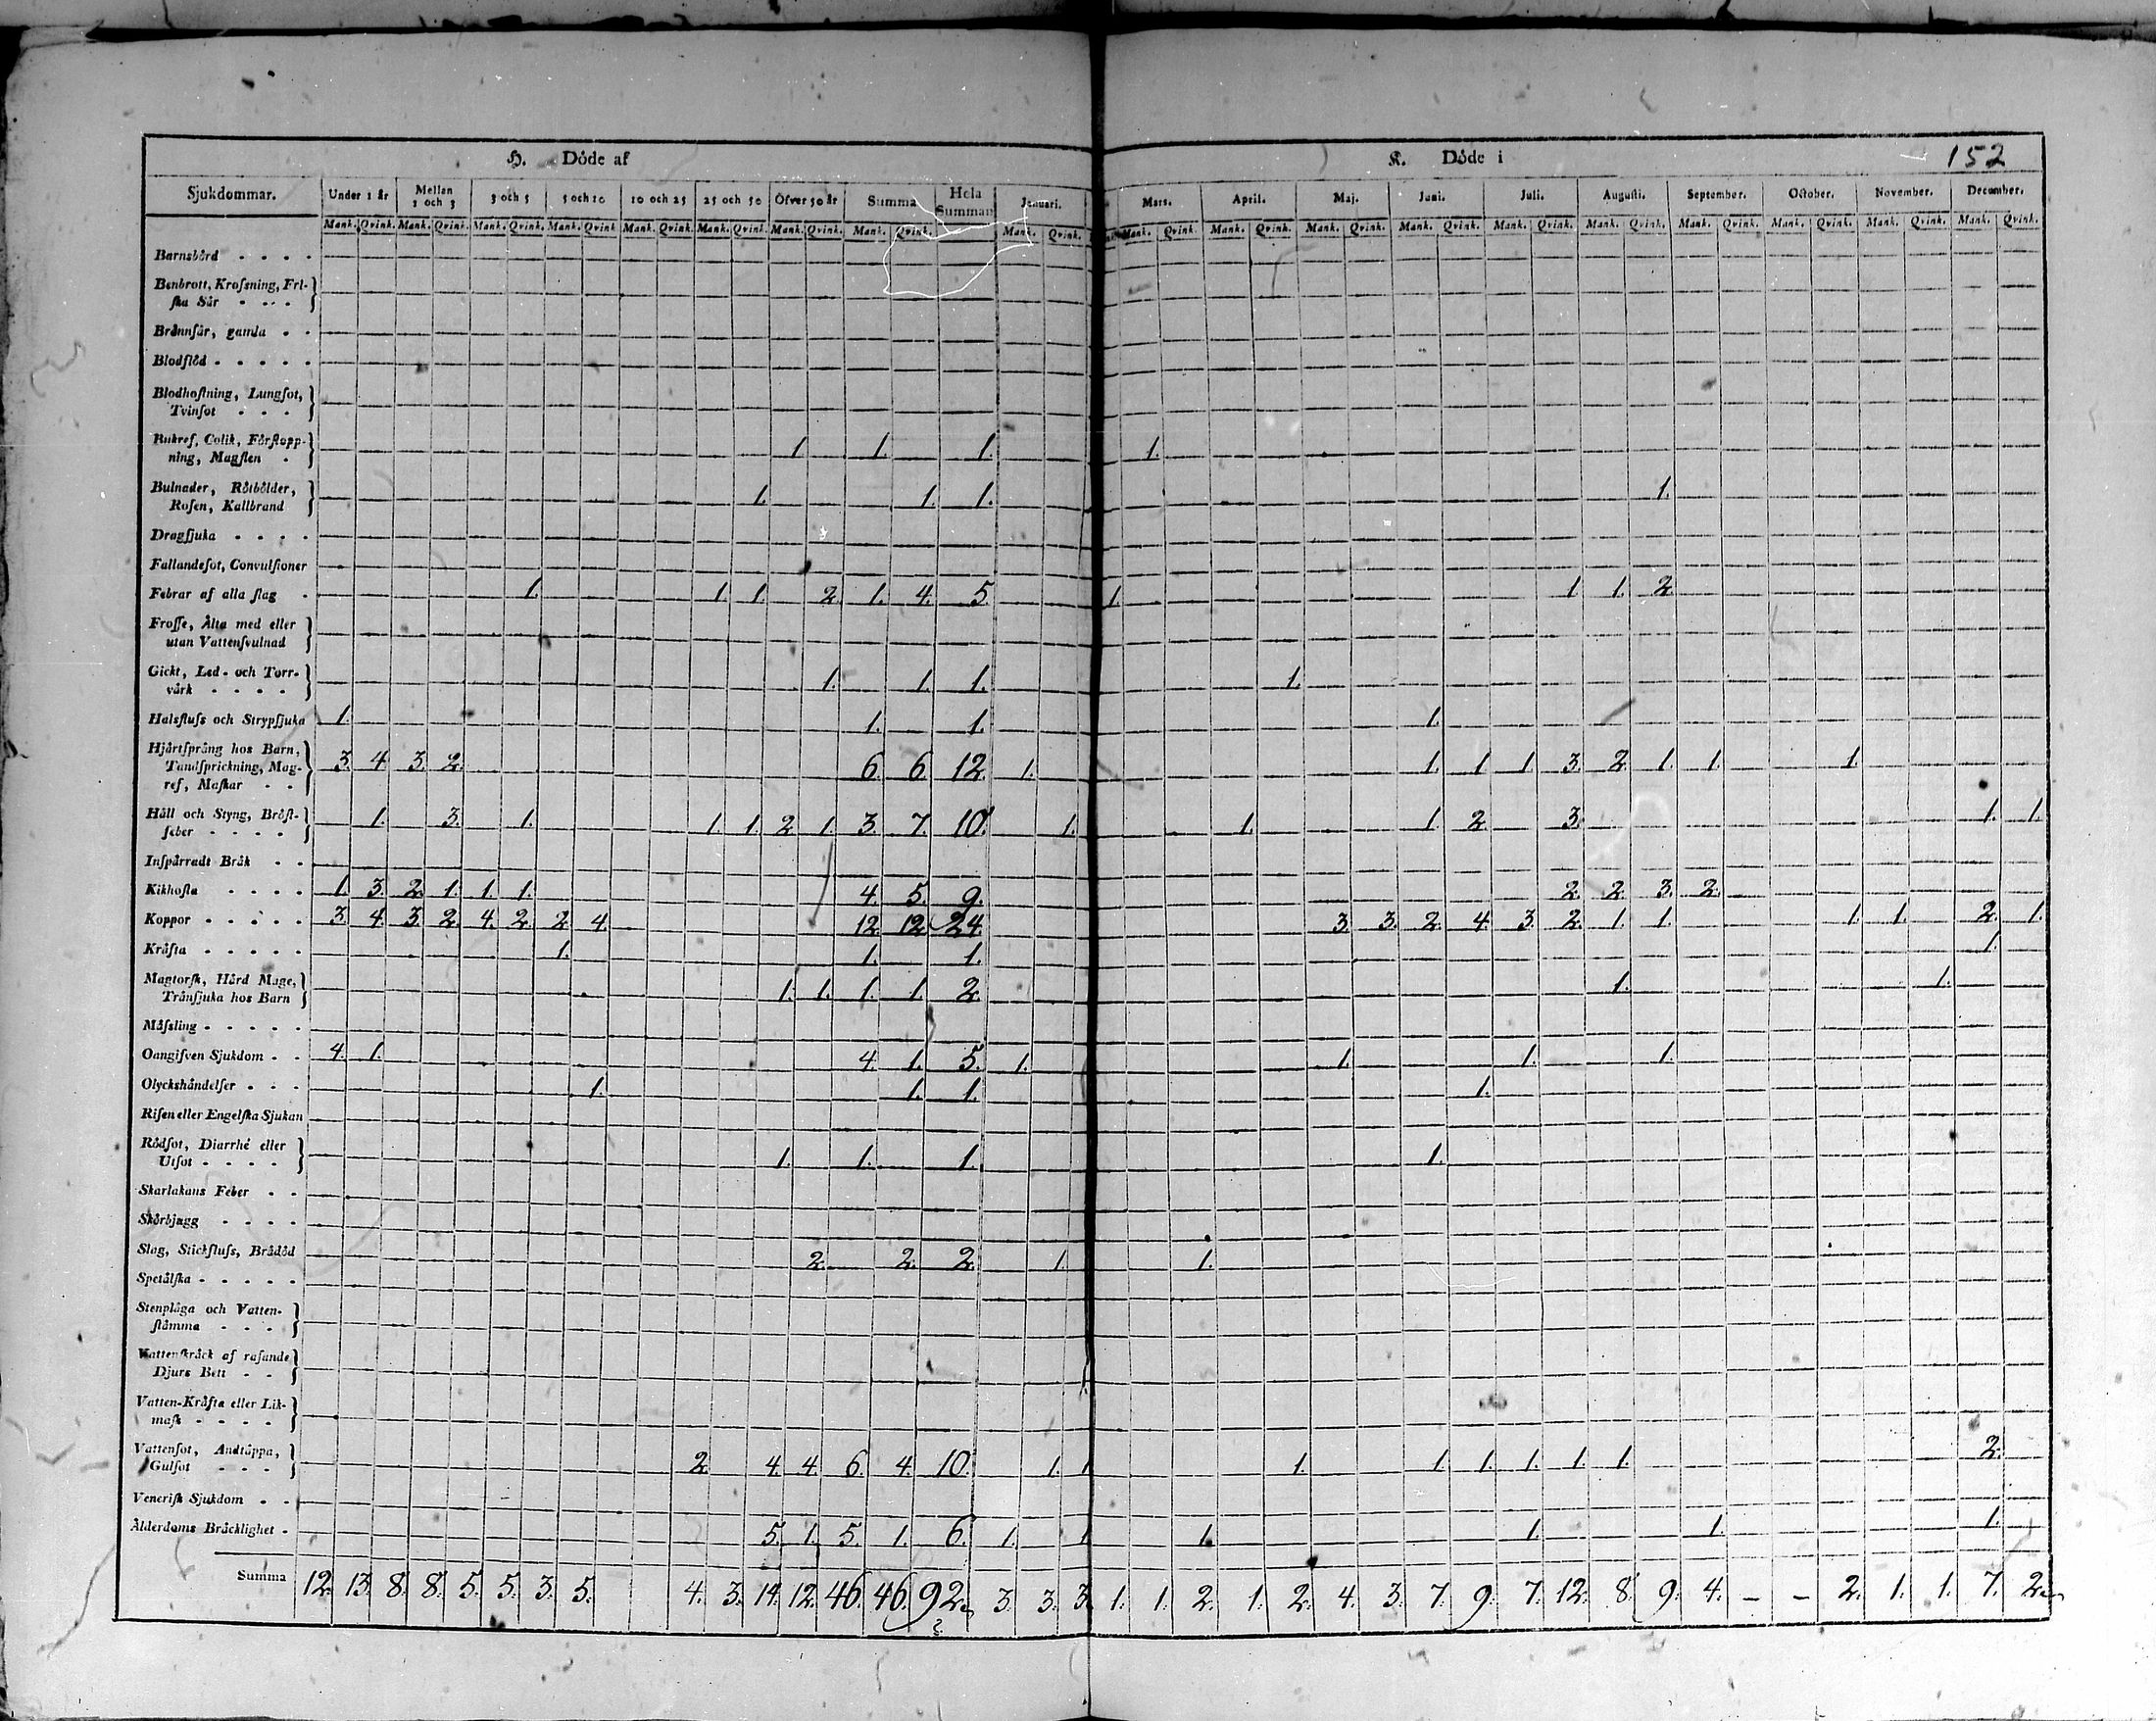 H. Döde af K. Döde i 152
Sjukdommar. Under 1 år Mellan 1 och 3 3 och 5 5 och 10 10 och 25 25 och 50 Öfver 50 år Summa Hela Summan Januari. Mars. April. Maj. Juni. Juli. Augusti. September. October. November. December.
Mank. Qvink. Mank. Qvink. Mank. Qvink. Mank. Qvink. Mank. Qvink. Mank. Qvink. Mank. Qvink. Mank. Qvink. Mank. Qvink. Mank. Qvink. Mank. Qvink. Mank. Qvink. Mank. Qvink. Mank. Qvink. Mank. Qvink. Mank. Qvink. Mank. Qvink. Mank. Qvink. Mank. Qvink.
Barnsbörd
Benbrott, Krosſning, Friſka Sår
Brännſår, gamla
Blodflöd
Blodhoſtning, Lungſot, Tvinſot
Bukref, Colik, Förſtoppning, Magſten 1. 1. 1. 1.
Bulnader, Rötbölder, Roſen, Kallbrand 1. 1. 1. 1.
Dragſjuka
Fallandeſot, Convulſioner
Febrar af alla ſlag 1. 1. 1. 2. 1. 4. 5. 1. 1. 1. 2.
Froſſe, Älta med eller utan Vattenſvulnad
Gickt, Led- och Torrvärk 1. 1. 1. 1.
Halsfluſs och Strypſjuka 1. 1. 1. 1.
Hjärtſprång hos Barn, Tandſprickning, Magref, Maſkar 3. 4. 3. 2. 6. 6. 12. 1. 1. 1. 1. 3. 2. 1. 1. 1.
Håll och Styng, Bröſtfeber 1. 3. 1. 1. 1. 2. 1. 3. 7. 10. 1. 1. 1. 2. 3. 1. 1.
Inſpärradt Bråk
Kikhoſta 1. 3. 2. 1. 1. 1. 4. 5. 9. 2. 2. 3. 2.
Koppor 3. 4. 3. 2. 4. 2. 2. 4. 12. 12. 24. 3. 3. 2. 4. 3. 2. 1. 1. 1. 1. 2. 1.
Kräfta 1. 1. 1. 1.
Magtorſk, Hård Mage, Trånſjuka hos Barn 1. 1. 1. 1. 2. 1. 1.
Måſsling
Oangifven Sjukdom 4. 1. 4. 1. 5. 1. 1. 1. 1.
Olyckshändelſer 1. 1. 1. 1.
Riſen eller Engelſka Sjukan
Rödſot, Diarrhé eller Utſot 1. 1. 1. 1.
Skarlakans Feber
Skörbjugg
Slag, Stickfluſs, Brådöd 2. 2. 2. 1. 1.
Spetälſka
Stenplåga och Vattenſtämma
Vattenſkräck af raſande Djurs Bett
Vatten-Kräfta eller Likmaſk
Vattenſot, Andtäppa, Gulſot 2. 4. 4. 6. 4. 10. 1. 1. 1. 1. 1. 1. 1. 1. 2.
Veneriſk Sjukdom
Ålderdoms Bräcklighet 5. 1. 5. 1. 6. 1. 1. 1. 1. 1. 1.
Summa 12. 13. 8. 8. 5. 5. 3. 5. 4. 3. 14. 12. 46. 46. 92. 3. 3. 3. 1. 1. 2. 1. 2. 4. 3. 7. 9. 7. 12. 8. 9. 4. – – 2. 1. 1. 7. 2.